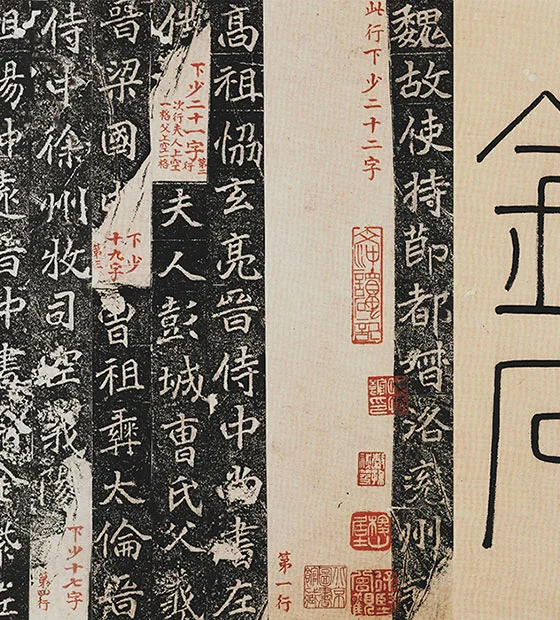 金石
魏故使持節都督洛兗州
此行下少二十二字
第一行
高祖恊玄亮晉侍中尚書左
下少二十一字
第二行
次行夫人上空
一格父上空一格
夫人彭城曹氏父義
晉梁國中
下少
十九字
第三
曾祖彝太倫晉
侍中徐州牧司空義陽
下少十七字
第四行
祖暢仲遠晉中書令金紫左